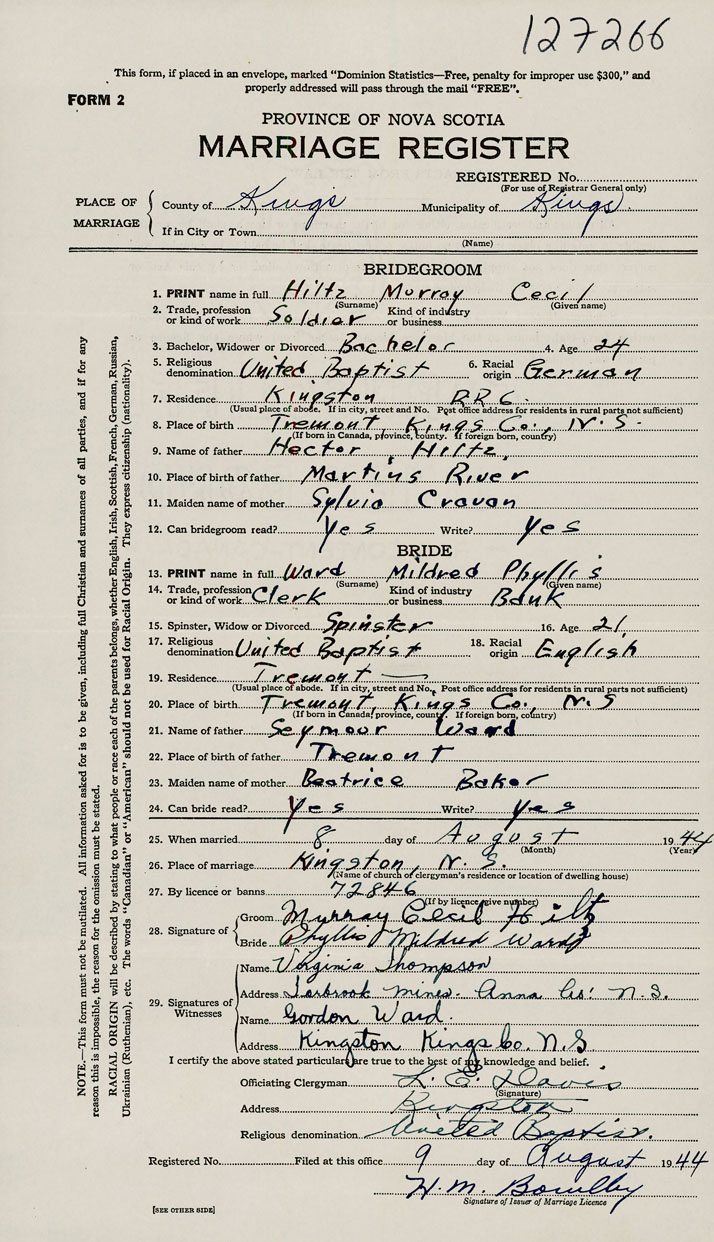 127266
This form, if placed in an envelope, marked "Dominion Statistics—Free, penalty for improper use $300," and
properly addressed will pass through the mail "FREE".
FORM 2
PROVINCE OF NOVA SCOTIA
MARRIAGE REGISTER
REGISTERED No.
(For use of Registrar General only)
PLACE OF MARRIAGE
County of Kings Municipality of Kings
If in City or Town
(Name)
BRIDEGROOM
1. PRINT name in full Hiltz Murray Cecil
(Surname) (Given name)
2. Trade, profession or kind of work Soldier Kind of industry or business
3. Bachelor, Widower or Divorced Bachelor 4. Age 24
5. Religious denomination United Baptist 6. Racial origin German
7. Residence Kingston RR6
(Usual place of abode. If in city, street and No. Post office address for residents in rural parts not sufficient)
8. Place of birth Tremont, Kings Co., N.S.
(If born in Canada, province, county. If foreign born, country)
9. Name of father Hector Hiltz
10. Place of birth of father Martins River
11. Maiden name of mother Sylvia Cravan
12. Can bridegroom read? Yes Write? Yes
BRIDE
13. PRINT name in full Ward Mildred Phyllis
(Surname) (Given name)
14. Trade, profession or kind of work Clerk Kind of industry or business Bank
15. Spinster, Widow or Divorced Spinster 16. Age 21
17. Religious denomination United Baptist 18. Racial origin English
19. Residence Tremont
(Usual place of abode. If in city, street and No. Post office address for residents in rural parts not sufficient)
20. Place of birth Tremont, Kings Co., N.S
(If born in Canada, province, county. If foreign born, country)
21. Name of father Seymour Ward
22. Place of birth of father Tremont
23. Maiden name of mother Beatrice Baker
24. Can bride read? Yes Write? Yes
25. When married 8 day of August 1944
(Month) (Year)
26. Place of marriage Kingston, N.S.
(Name of church of clergyman's residence or location of dwelling house)
27. By licence or banns 72846
(If by licence give number)
28. Signature of
Groom Murray Cecil Hiltz
Bride Phyllis Mildred Ward
29. Signatures of Witnesses
Name Virginia Thompson
Address Torbrook Mines. Anna Co. N.S.
Name Gordon Ward.
Address Kingston Kings Co. N.S
I certify the above stated particulars are true to the best of my knowledge and belief.
Officiating Clergyman L. E. Davis
(Signature)
Address Kingston
Religious denomination United Baptist.
Registered No. Filed at this office 9 day of August 1944
H. M. Bowlby
Signature of Issuer of Marriage Licence
[SEE OTHER SIDE]
NOTE.—This form must not be mutilated. All information asked for is to be given, including full Christian and surnames of all parties, and if for any
reason this is impossible, the reason for the omission must be stated.
RACIAL ORIGIN will be described by stating to what people or race each of the parents belongs, whether English, Irish, Scottish, French, German, Russian,
Ukrainian (Ruthenian), etc. The words "Canadian" or "American" should not be used for Racial Origin. They express citizenship (nationality).